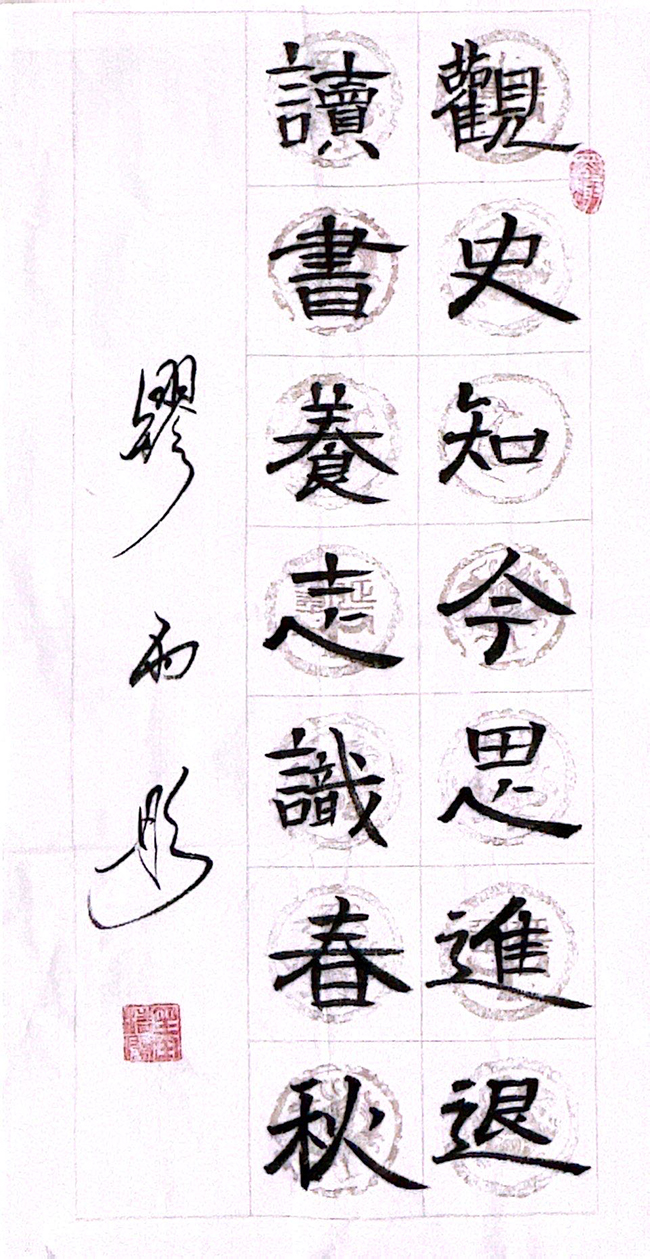 觀史知今思進退
讀書養志識春秋